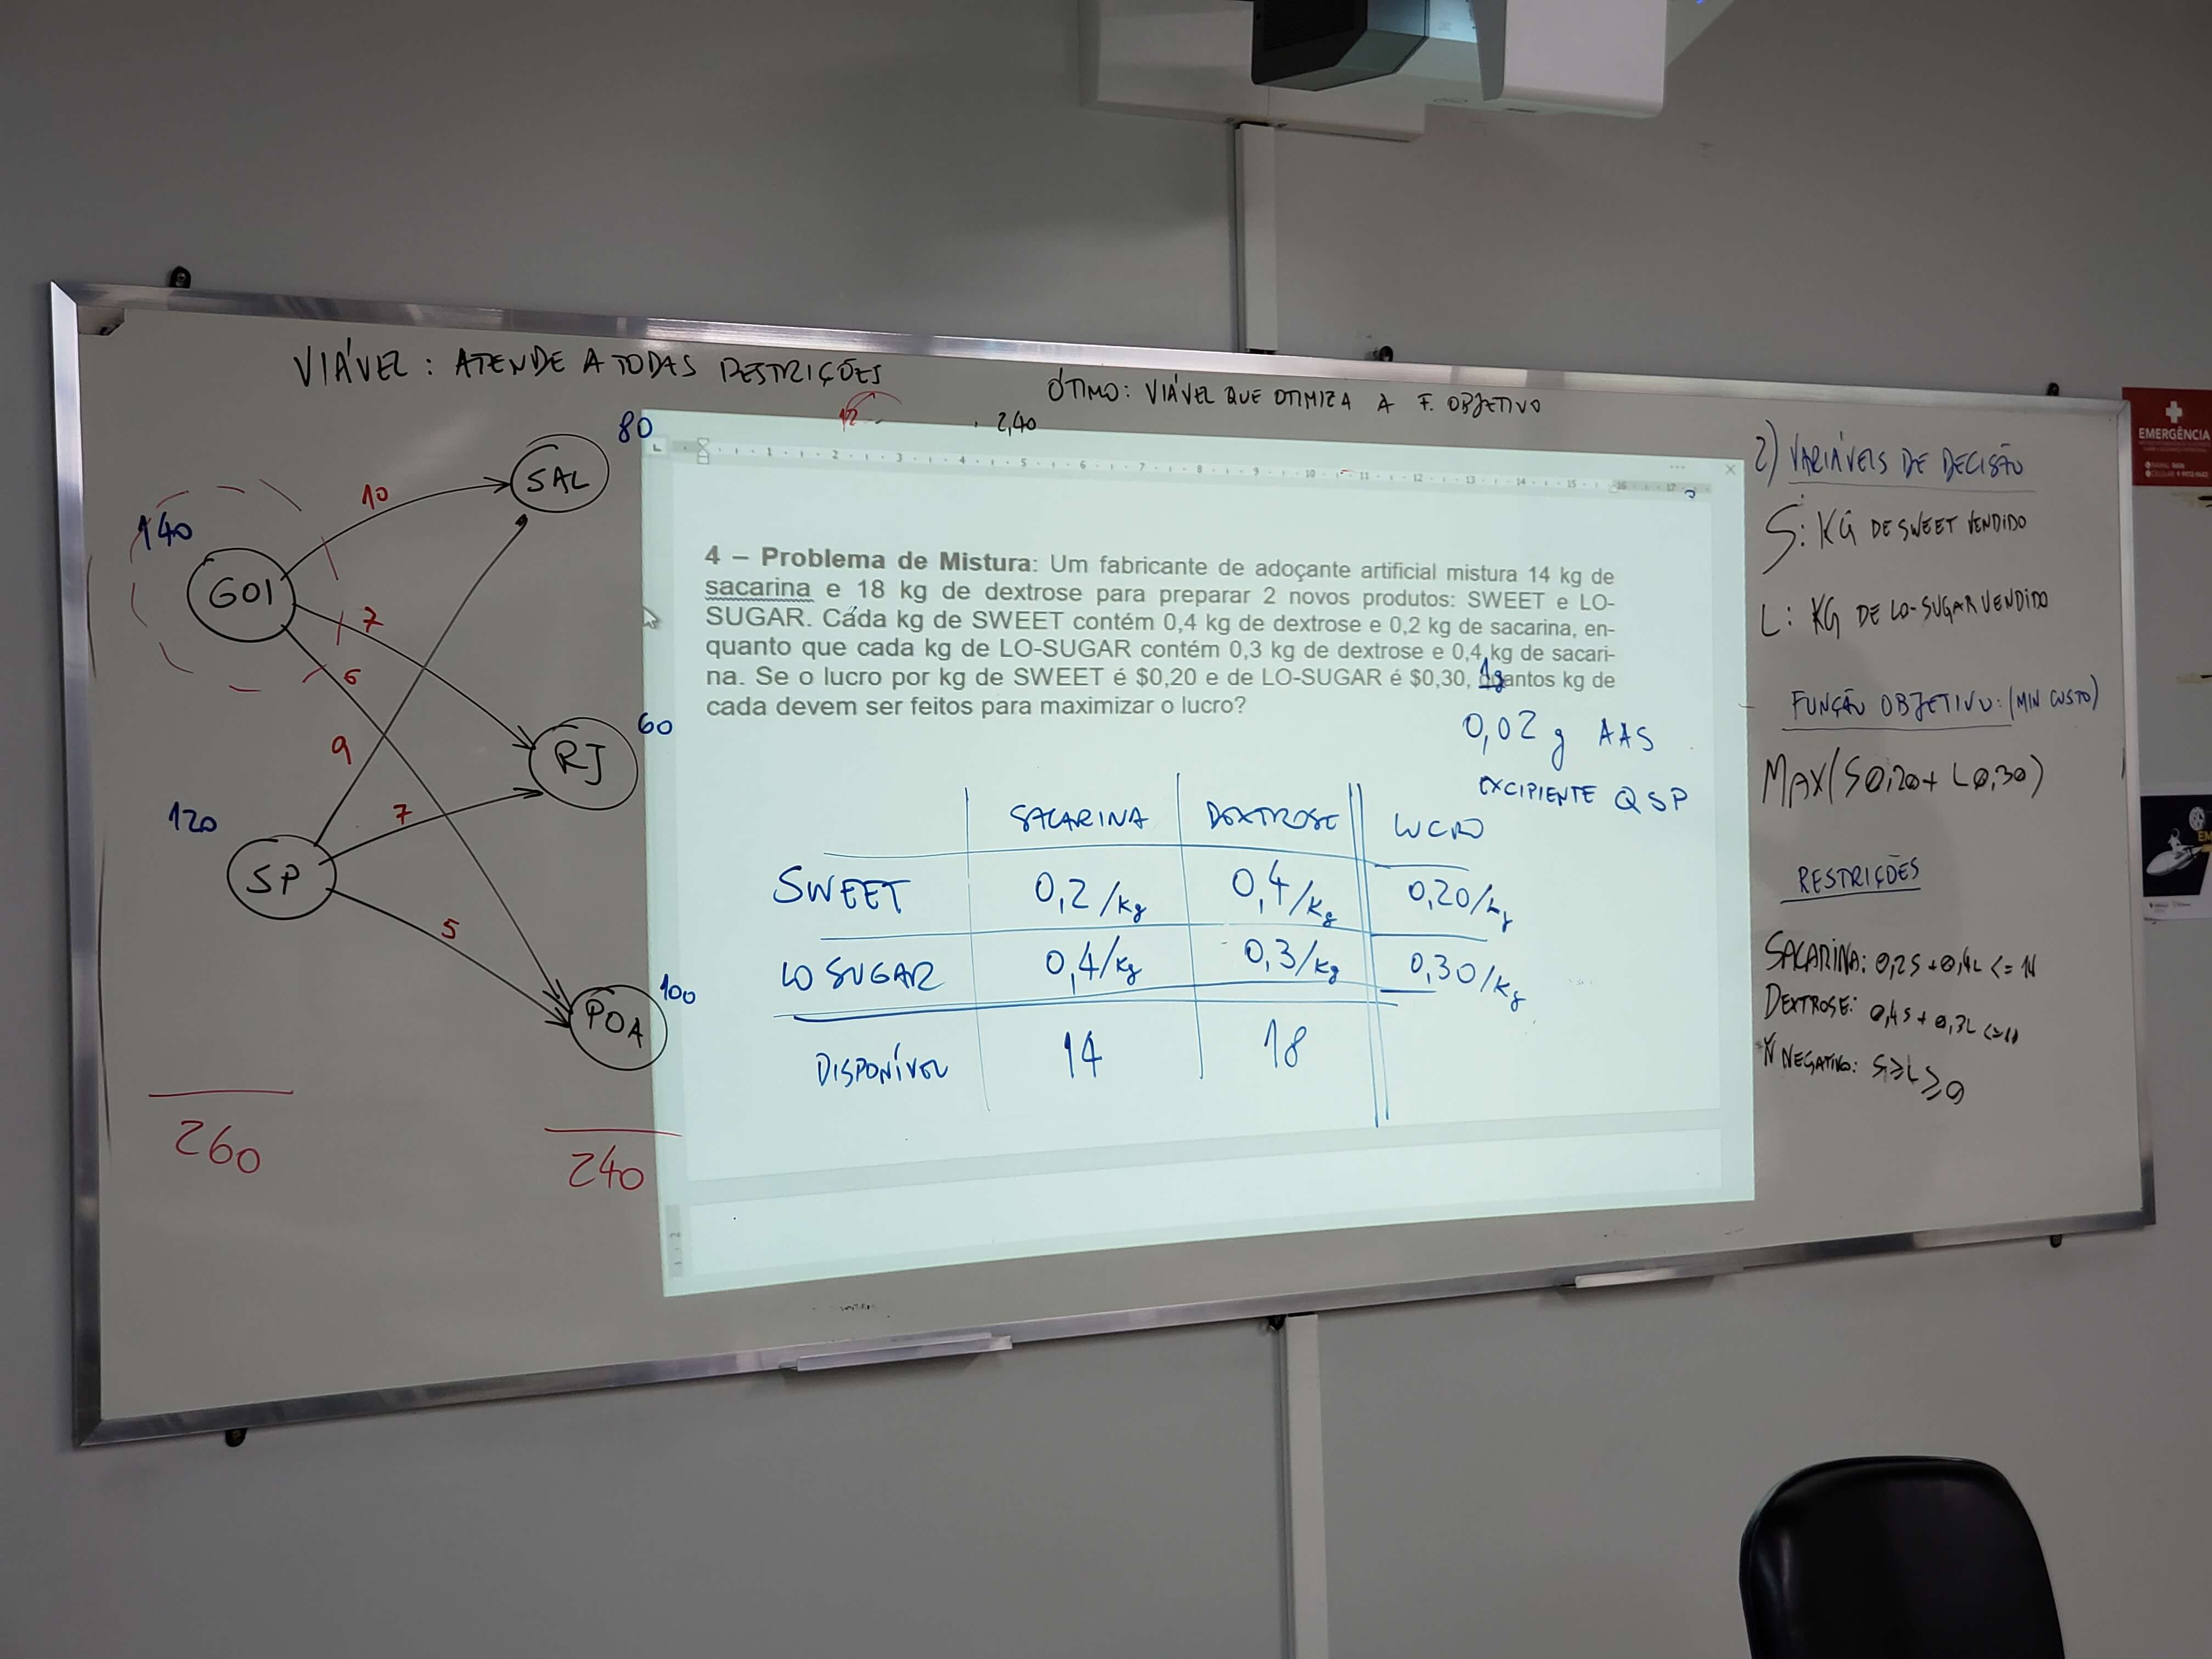 VIÁVEL: ATENDE A TODAS RESTRIÇÕES
ÓTIMO: VIÁVEL QUE OTIMIZA A F. OBJETIVO
12
2,40
80
SAL
10
140
GOI
7
6
60
RJ
9
120
7
SP
5
100
POA
260
240
1 2 3 4 5 6 7 8 9 10 11 12 13 14 15 16 17
4 – Problema de Mistura: Um fabricante de adoçante artificial mistura 14 kg de
sacarina e 18 kg de dextrose para preparar 2 novos produtos: SWEET e LO-
SUGAR. Cada kg de SWEET contém 0,4 kg de dextrose e 0,2 kg de sacarina, en-
quanto que cada kg de LO-SUGAR contém 0,3 kg de dextrose e 0,4 kg de sacari-
na. Se o lucro por kg de SWEET é $0,20 e de LO-SUGAR é $0,30, quantos kg de
cada devem ser feitos para maximizar o lucro?
1g
0,02 g AAS
EXCIPIENTE QSP
SACARINA DEXTROSE LUCRO
SWEET 0,2/kg 0,4/kg 0,20/kg
LO SUGAR 0,4/kg 0,3/kg 0,30/kg
DISPONÍVEL 14 18
2) VARIÁVEIS DE DECISÃO
S: KG DE SWEET VENDIDO
L: KG DE LO-SUGAR VENDIDO
FUNÇÃO OBJETIVO: (MIN CUSTO)
MAX(S0,20 + L0,30)
RESTRIÇÕES
SACARINA: 0,2S + 0,4L <= 14
DEXTROSE: 0,4S + 0,3L <=
Ñ NEGATIVO: S≥L≥0
EMERGÊNCIA